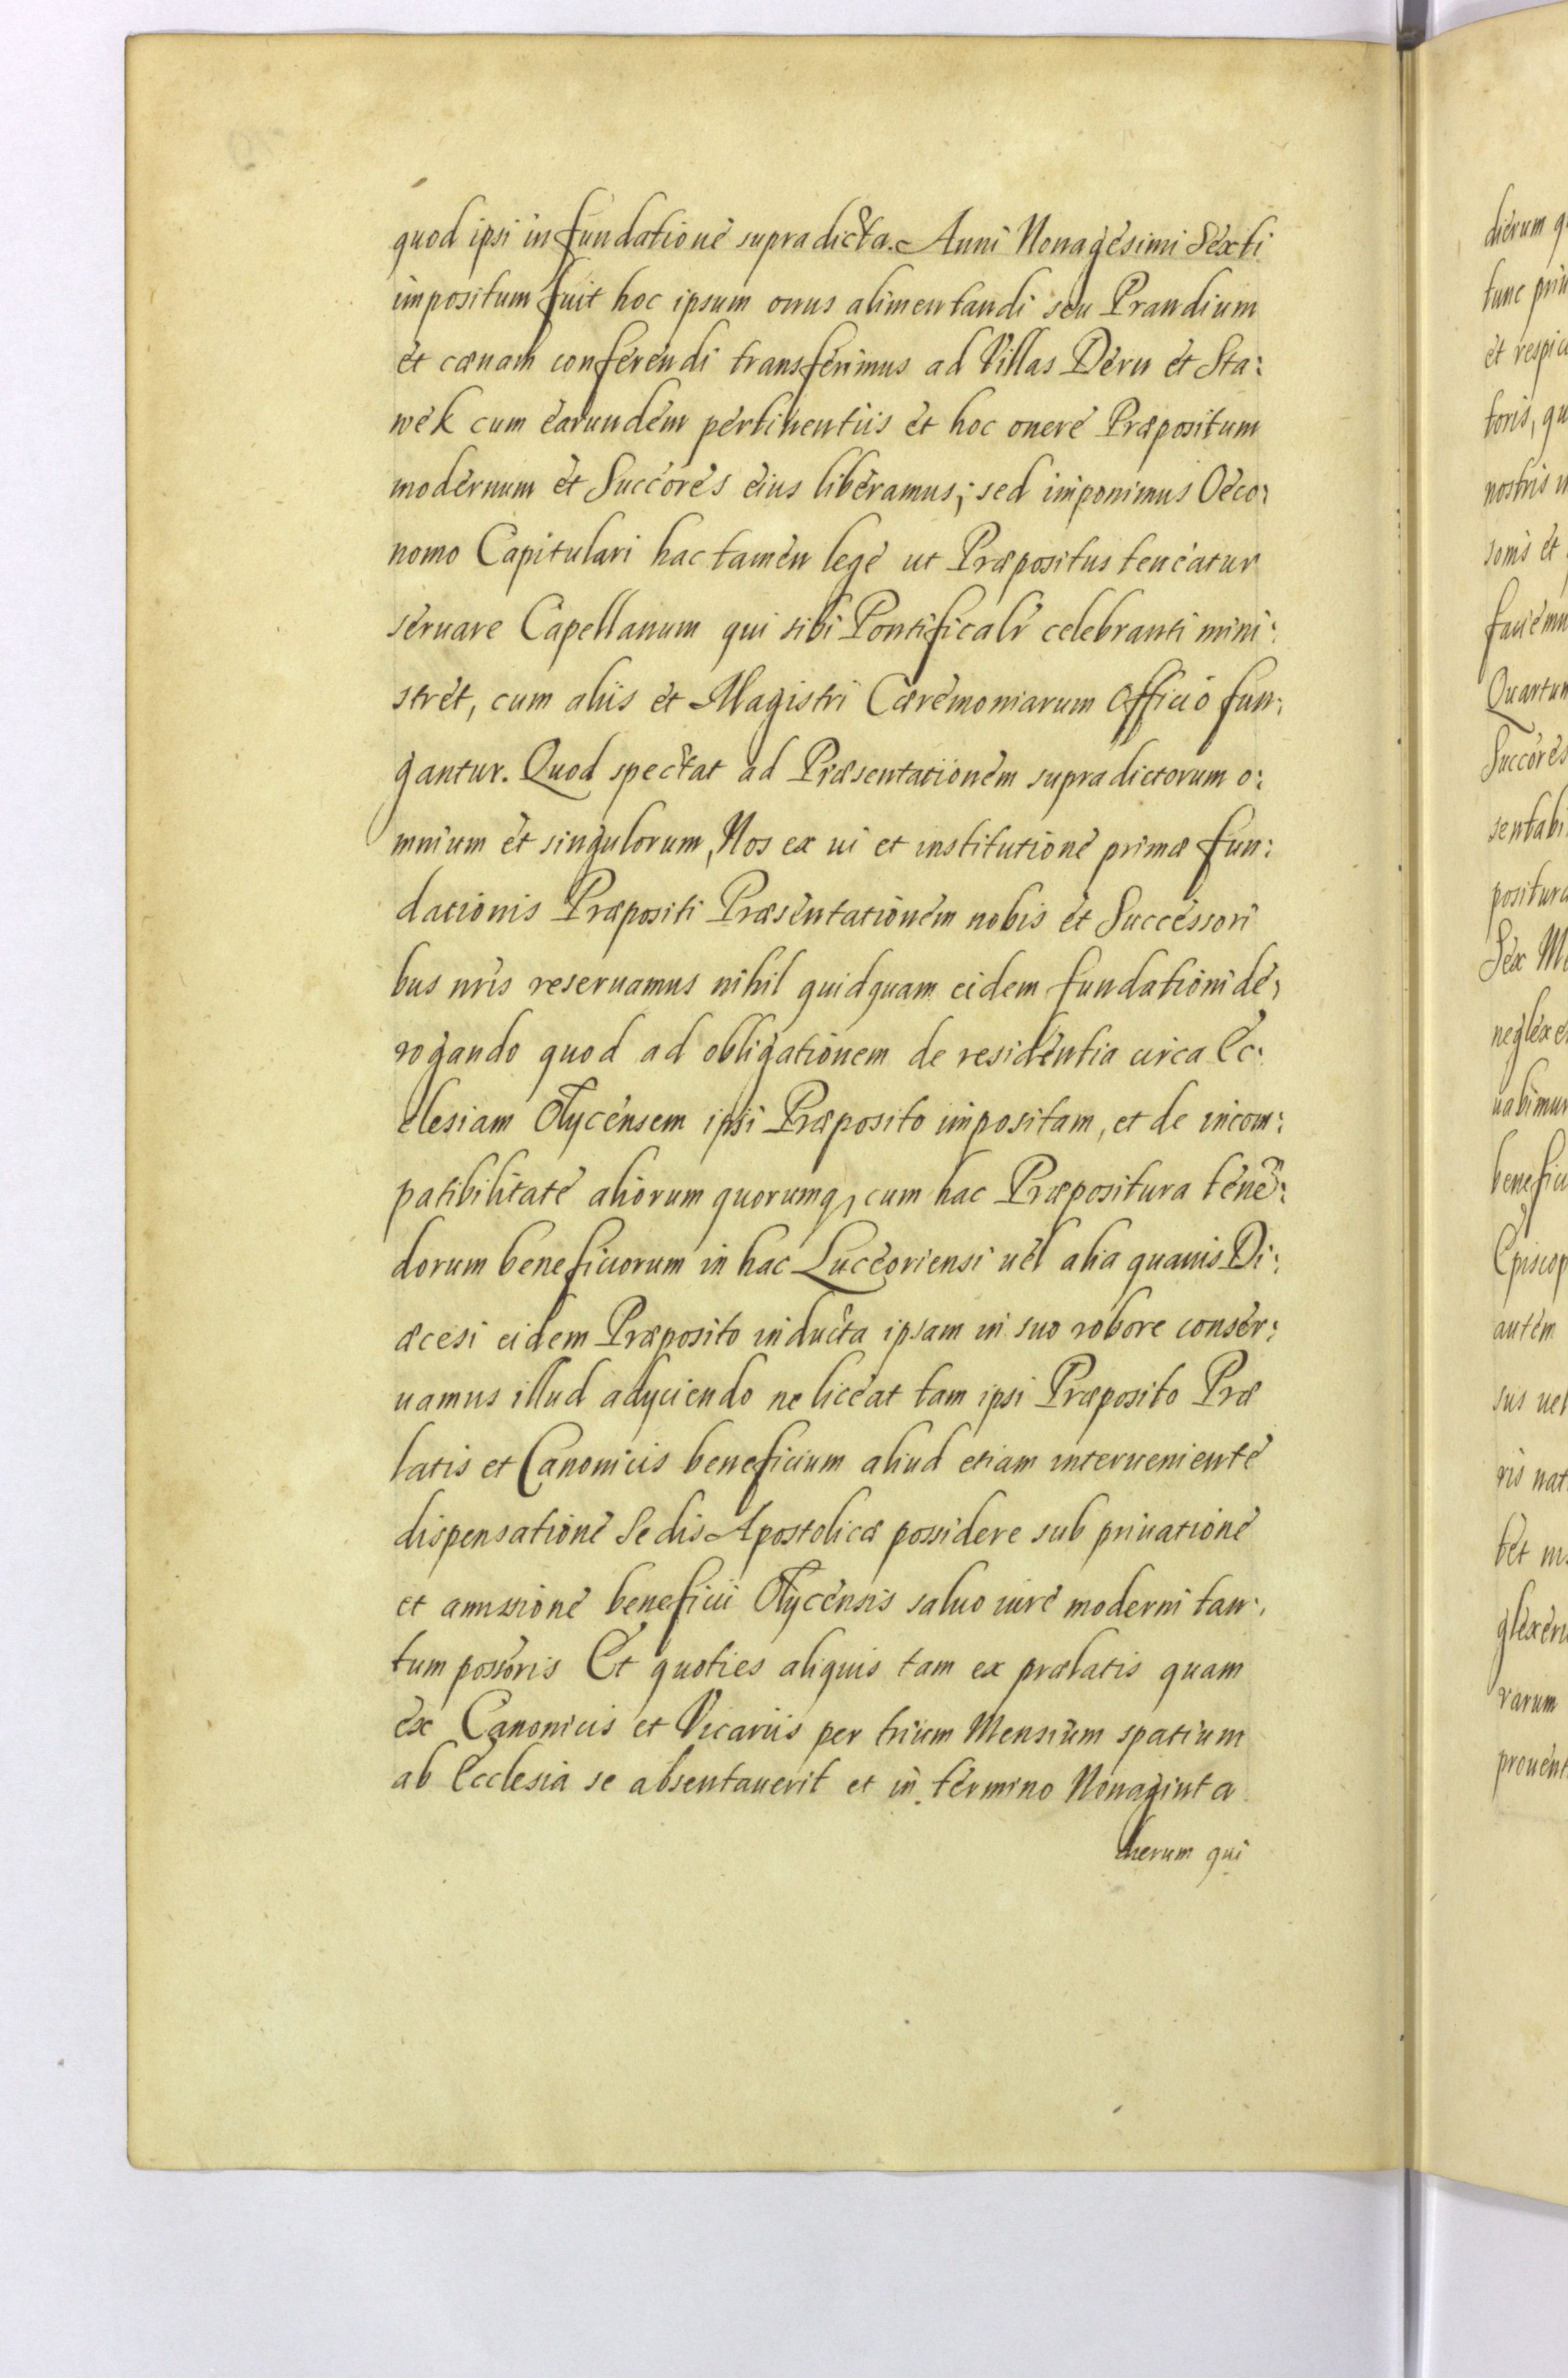 quod ipsi in fundatione supradicta. Anni Nonagesimi Sexti
impositum fuit hoc ipsum onus alimentandi seu Prandium
et cænam conferendi transferimus ad Villas Dern et Sta:
wek cum earundem pertinentiis et hoc onere Præpositum
modernum et Succores eius liberamus; sed imponimus Oeco:
nomo Capitulari hac tamen lege ut Præpositus teneatur
seruare Capellanum qui sibi Pontificalr celebranti mini:
stret, cum aliis et Magistri Cæremoniarum Officio fun:
gantur. Quod spectat ad Præsentationem supradictorum o:
mnium et singulorum, Nos ex ui et institutione primæ fun:
dationis Præpositi Præsentationem nobis et Successori
bus nris reseruamus nihil quidquam eidem fundationi de,
rogando quod ad obligationem de residentia circa Ec:
clesiam Olycensem ipsi Præposito impositam, et de incom:
patibilitate aliorum quorumq, cum hac Præpositura tenē:
dorum beneficiorum in hac Luceoriensi uel alia quauis Di:
æcesi eidem Præposito inducta ipsam in suo robore conser:
uamus illud adyciendo ne liceat tam ipsi Præposito Præ
latis et Canonicis beneficium aliud etiam interueniente
dispensatione Sedis Apostolicæ possidere sub priuatione
et amissione beneficii Olycensis saluo iure moderni tan:
tum possoris Et quoties aliquis tam ex prælatis quam
ex Canonicis et Vicariis per trium Mensium spatium
ab Ecclesia se absentauerit et in termino Nonaginta
dierum qui
dierum q
tunc
et
toris, qu
nostris
et
Quartum
Succores
Sex
autem
sus uel
varum